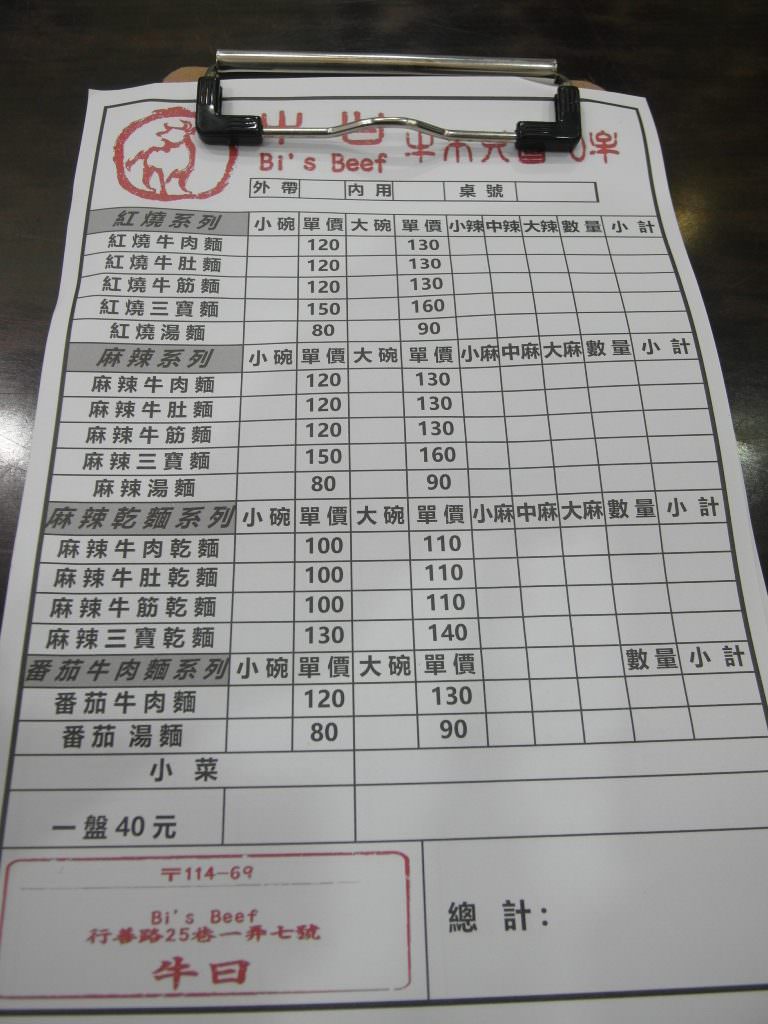 Bi's Beef
外帶 內用 桌號
紅燒系列 小碗 單價 大碗 單價 小辣 中辣 大辣 數量 小計
紅燒牛肉麵 120 130
紅燒牛肚麵 120 130
紅燒牛筋麵 120 130
紅燒三寶麵 150 160
紅燒湯麵 80 90
麻辣系列 小碗 單價 大碗 單價 小麻 中麻 大麻 數量 小計
麻辣牛肉麵 120 130
麻辣牛肚麵 120 130
麻辣牛筋麵 120 130
麻辣三寶麵 150 160
麻辣湯麵 80 90
麻辣乾麵系列 小碗 單價 大碗 單價 小麻 中麻 大麻 數量 小計
麻辣牛肉乾麵 100 110
麻辣牛肚乾麵 100 110
麻辣牛筋乾麵 100 110
麻辣三寶乾麵 130 140
番茄牛肉麵系列 小碗 單價 大碗 單價 數量 小計
番茄牛肉麵 120 130
番茄湯麵 80 90
小菜
一盤40元
〒114-69
Bi's Beef
行善路25巷一弄七號
牛日
總計: